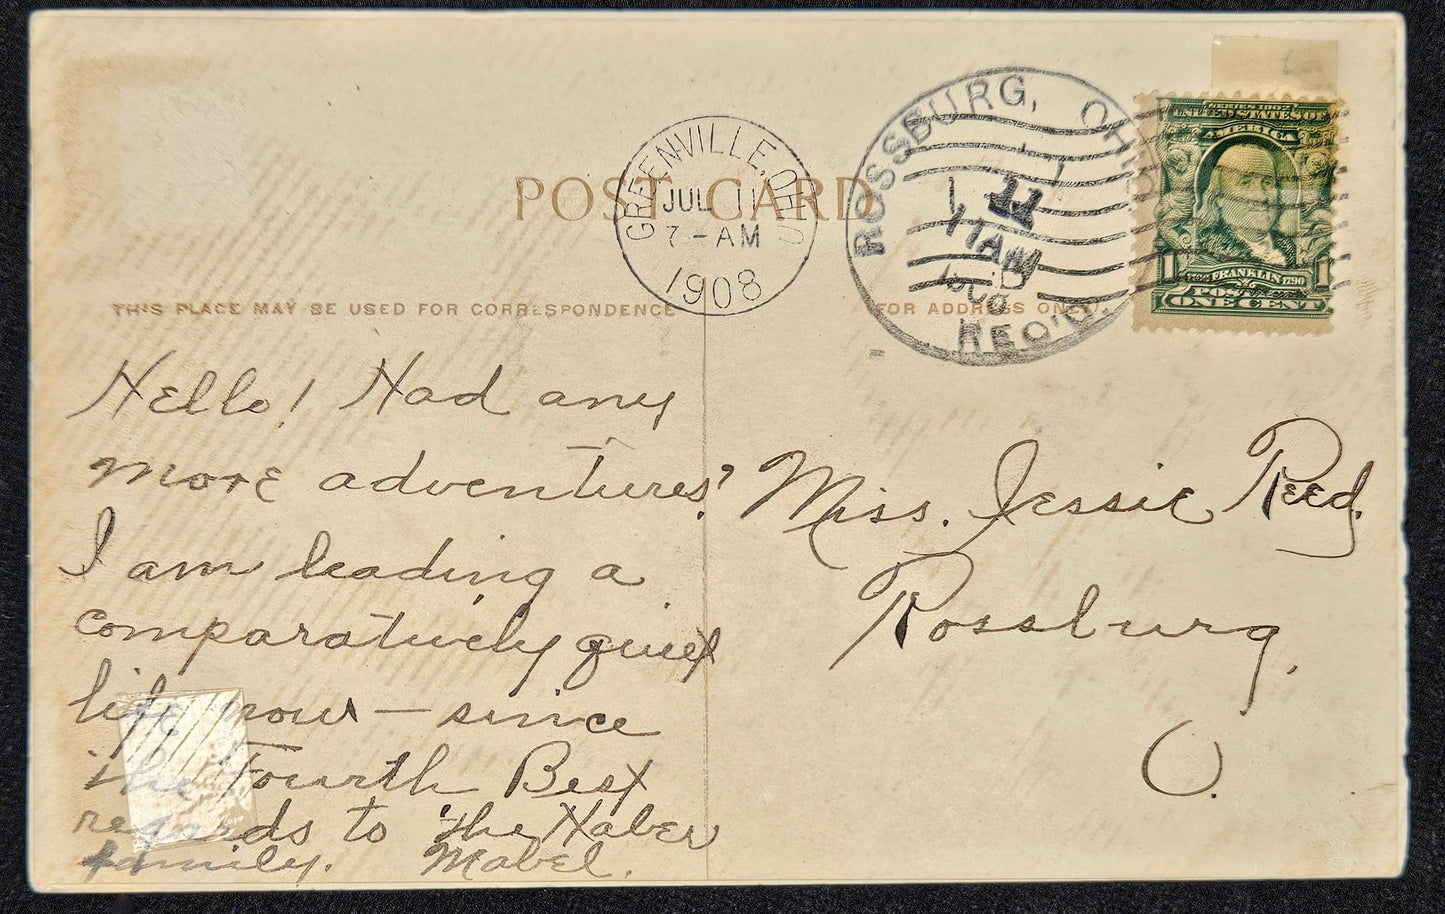 POST CARD
GREENVILLE, OHIO
JUL 11
7-AM
1908
ROSSBURG, OHIO
11
11AM
REC'D.
SERIES 1902
UNITED STATES OF
AMERICA
1706 FRANKLIN 1790
1 1
POSTAGE
ONE CENT
THIS PLACE MAY BE USED FOR CORRESPONDENCE
FOR ADDRESS ONLY.
Hello! Had any
more adventures?
I am leading a
comparatively quiet
life now — since
the Fourth Best
regards to the Haber
family. Mabel.
Miss. Jessie Reed.
Rossburg,
O.